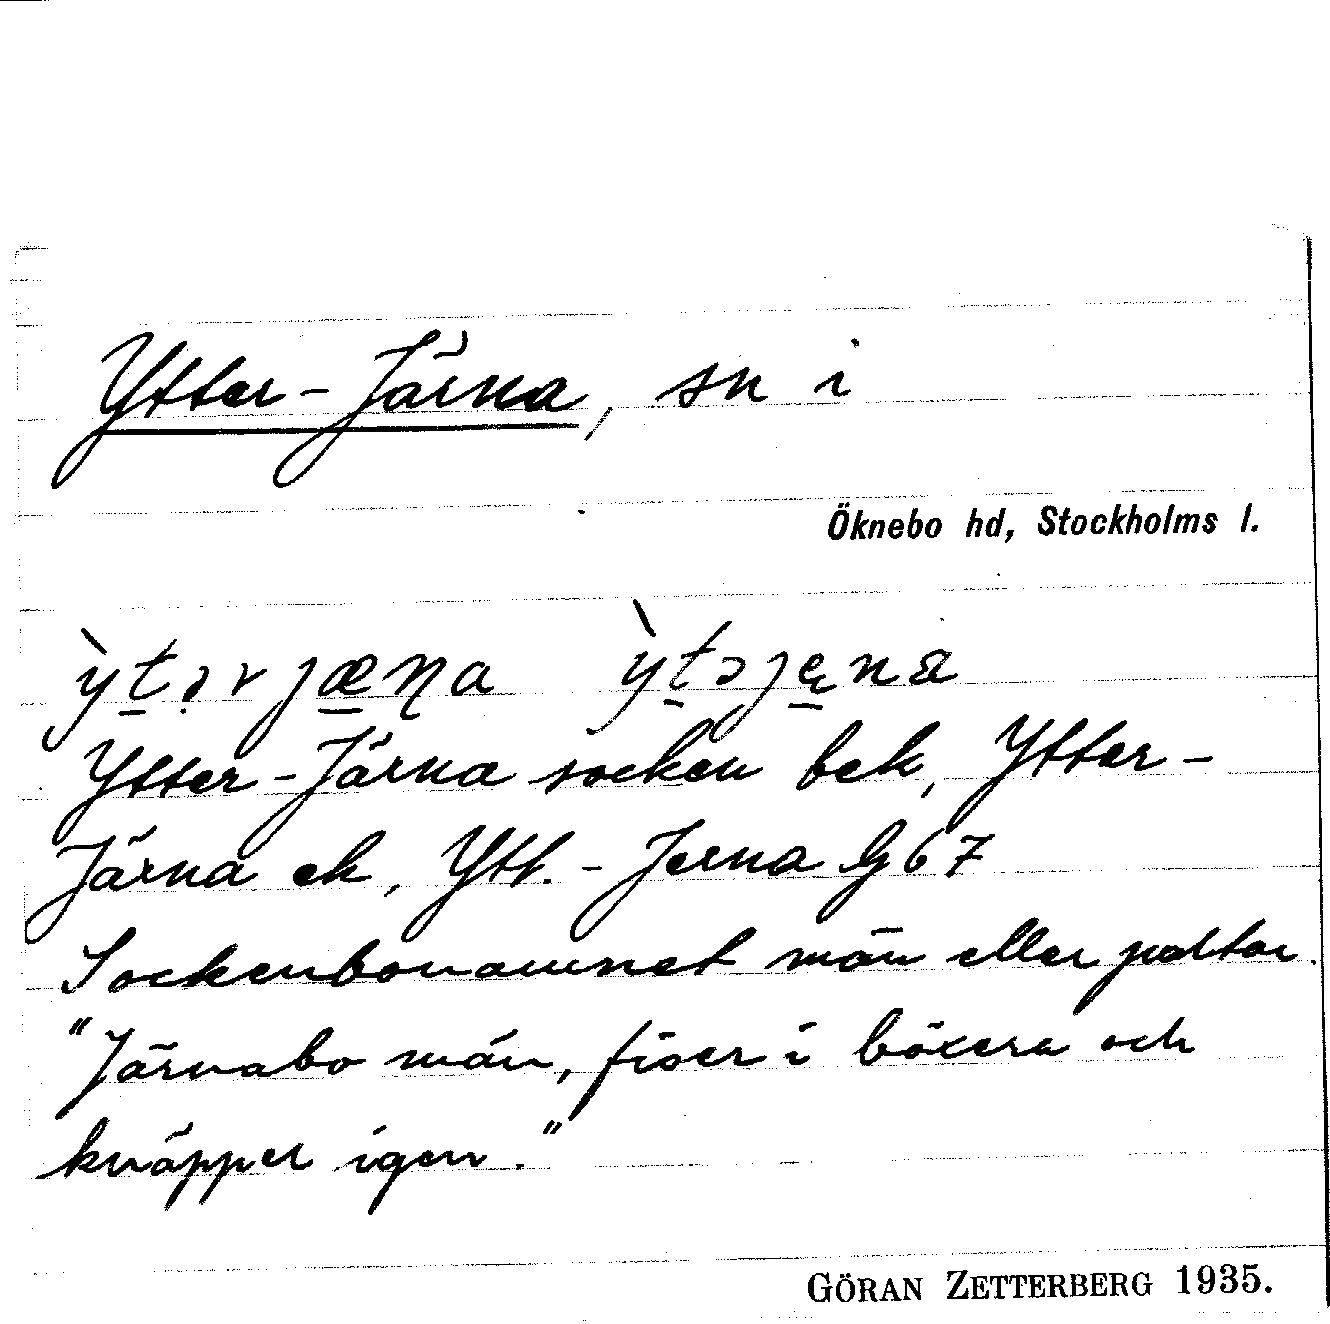 Ytter-Järna, sn i
Öknebo hd, Stockholms l.
ỳt̠ərjæ̠ɳa ỳt̠əję̠na
Ytter-Järna socken bek, Ytter-
Järna ek, Ytt.-Jerna G 67
Sockenbonamnet män eller paltar.
"Järnabo män, fiser i böxera och
knäpper igen."
GÖRAN ZETTERBERG 1935.